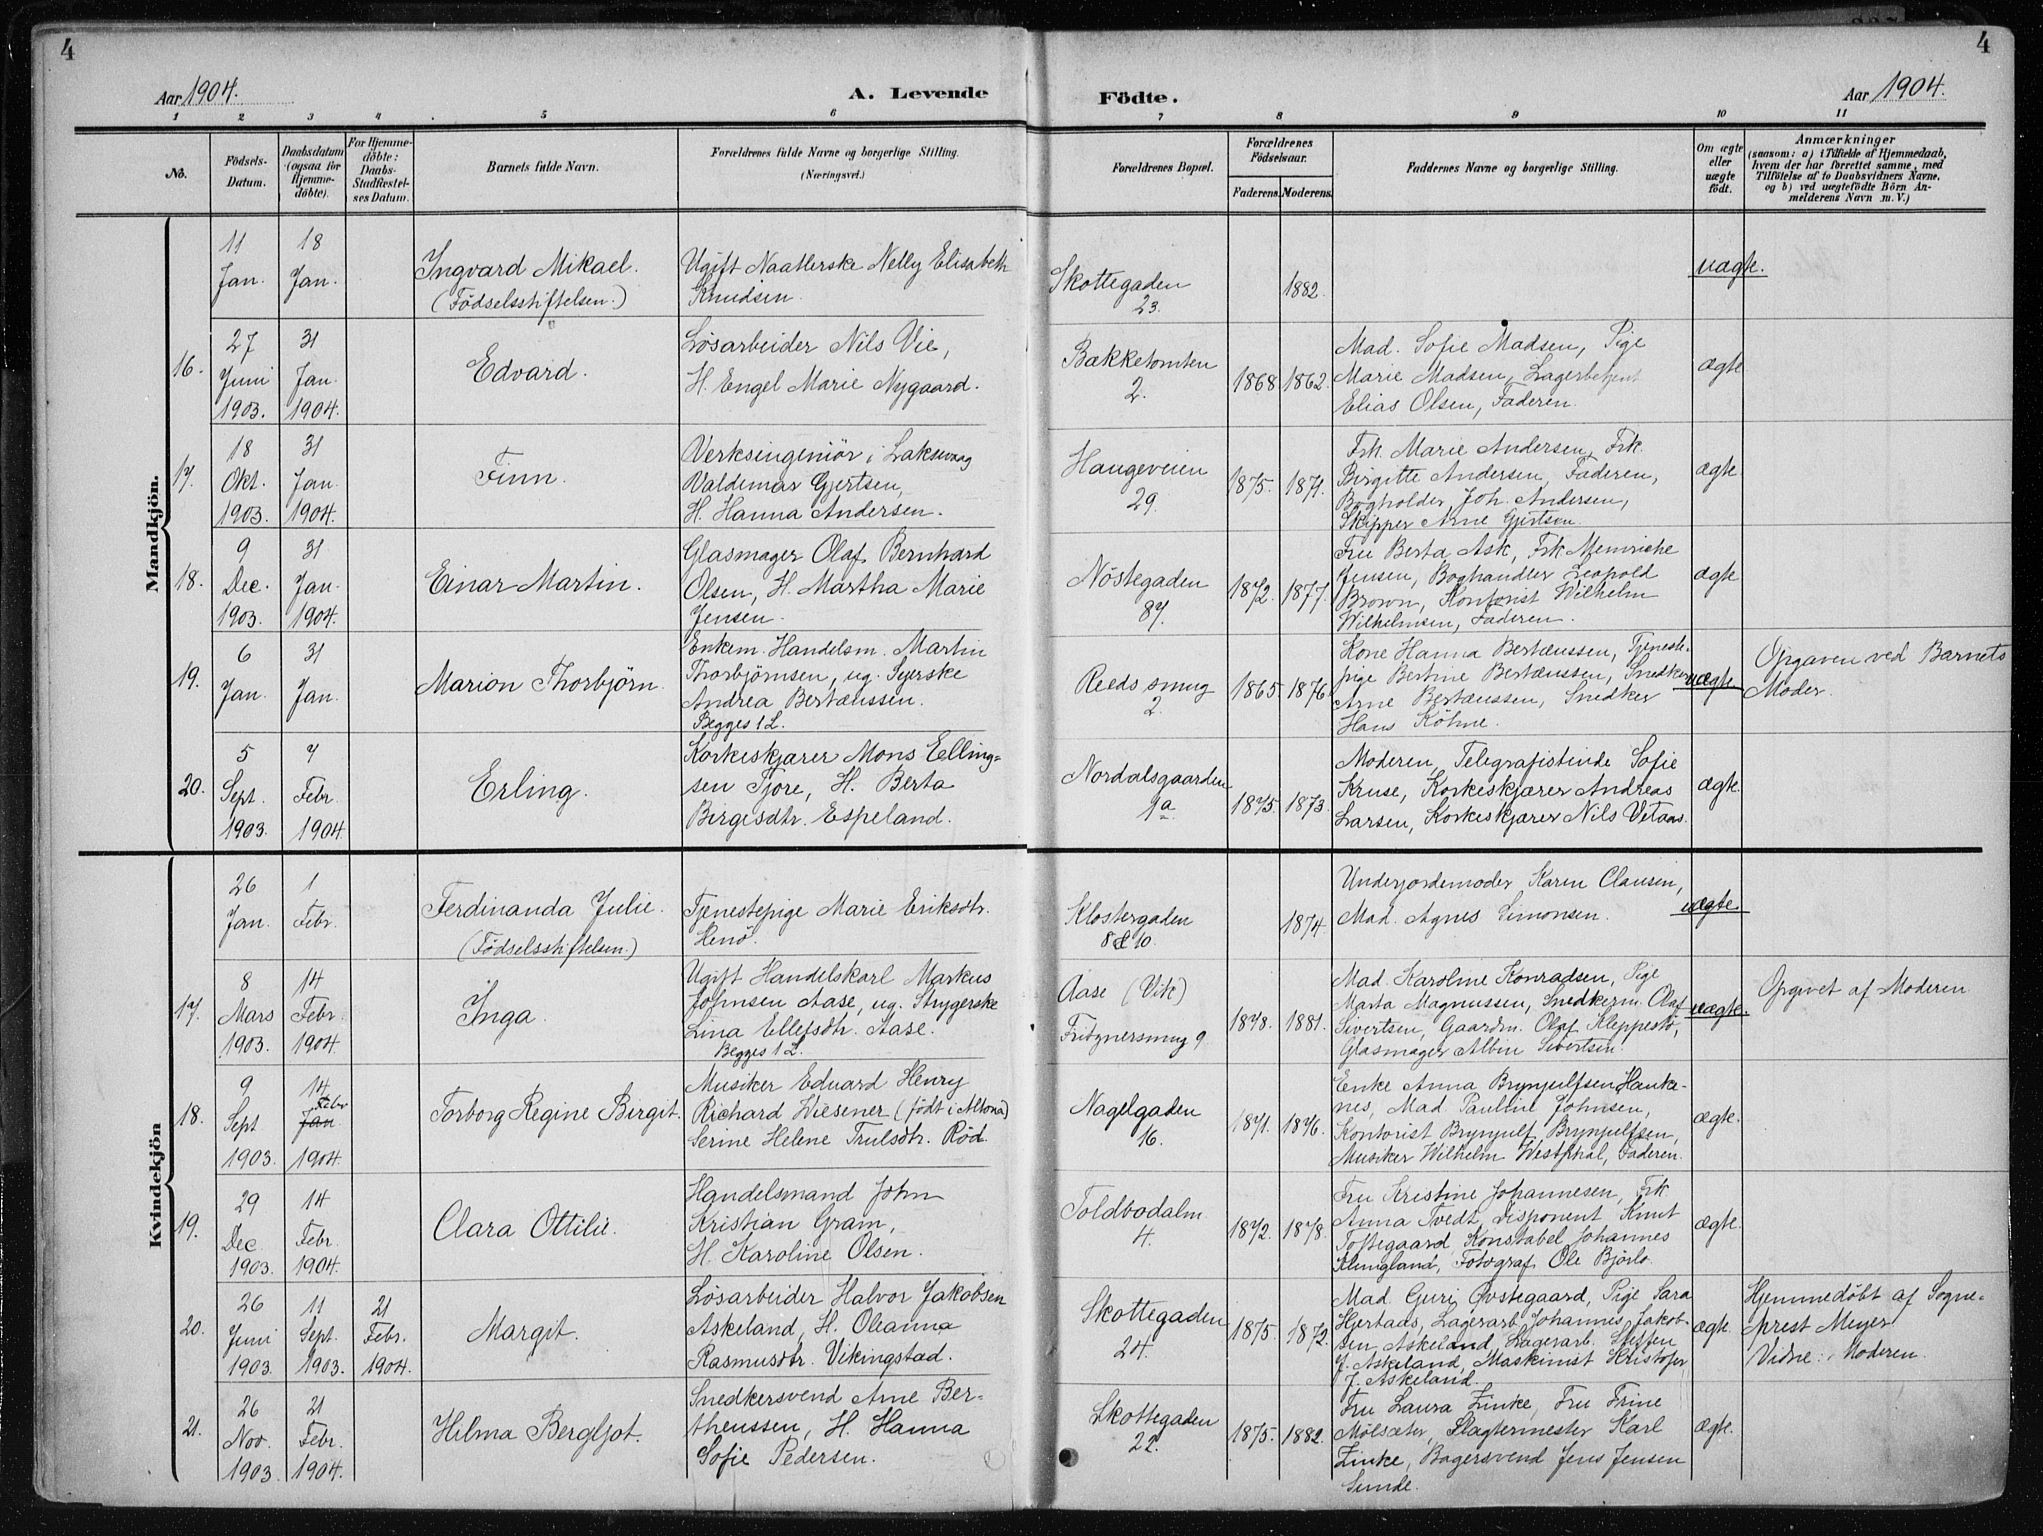 4
4
Aar 1904.
A. Levende
Födte.
Aar 1904.
1 2 3 4 5 6 7 8 9 10 11
No.
Födsels-
Datum.
Daabsdatum
(ogsaa for
Hjemme-
döbte).
For Hjemme-
döbte:
Daabs-
Stadfæstel-
ses Datum.
Barnets fulde Navn.
Forældrenes fulde Navne og borgerlige Stilling.
(Næringsvei.)
Forældrenes Bopæl.
Forældrenes
Födselsaar.
Faderens. Moderens.
Faddernes Navne og borgerlige Stilling.
Om ægte
eller
uægte
födt.
Anmærkninger
(saasom: a) i Tilfælde af Hjemmedaab,
hvem der har forrettet samme, med
Tilföielse af to Daabsvidners Navne,
og b) ved uægtefödte Börn An-
melderens Navn m. V.)
Mandkjön.
11
Jan.
18
Jan.
Ingvard Mikael.
(Födselsstiftelsen.)
Ugift Naatlerske Nelly Elisabeth
Knudsen.
Skottegaden
23.
1882.
uægte.
16.
27
Juni
1903.
31
Jan.
1904.
Edvard.
Løsarbeider Nils Vie,
H. Engel Marie Nygaard.
Bakketomten
2.
1868 1862.
Mad. Sofie Madsen, Pige
Marie Madsen, Lagerbetjent
Elias Olsen, Faderen.
ægte
17.
18
Okt.
1903.
31
Jan.
1904.
Finn.
Verksingeniör i Laksevaag
Valdemar Gjertsen,
H. Hanna Andersen.
Haugeveien
29.
1875. 1871.
Frk. Marie Andersen, Frk.
Birgitte Andersen, Faderen,
Bogholder Joh. Andersen,
Skipper Arne Gjertsen.
ægte
18.
9
Dec.
1903.
31
Jan.
1904.
Einar Martin.
Glasmager Olaf Bernhard
Olsen, H. Martha Marie
Jensen.
Nöstegaden
87.
1872. 1877.
Fru Berta Ask, Frk
Jensen, Boghandler Leopold
Brown, Kontorist Wilhelm
Wilhelmsen, Faderen.
ægte
19.
6
Jan.
31
Jan.
Marion Thorbjörn.
Enkem. Handelsm. Martin
Thorbjörnsen, ug. Syerske
Andrea Bertæussen.
Begges 1 L.
Reeds smug
2.
1865. 1876.
Kone Hanna Bertæussen, Tjeneste-
pige Bertine Bertæussen, Snedker
Arne Bertæussen, Snedker
Hans Köhne.
uægte
Opgaven ved Barnets
Moder.
20.
5
Sept.
1903.
7
Febr.
1904
Erling.
Korkeskjærer Mons Elling-
sen Tjore, H. Berta
Birgesdtr. Espeland.
Nordalsgaarden
1a
1875. 1873.
Moderen, Telegrafistinde Sofie
Kruse, Korkeskjærer Andreas
Larsen, Korkeskjærer Nils Vetaas.
ægte.
Kvindekjön
26
Jan.
1
Febr.
Ferdinanda Julie.
(Födselsstiftelsen.)
Tjenestepige Marie Eriksdtr.
Henö.
Klostergaden
8 & 10.
1874.
Underjordemoder Karen Clausen,
Mad. Agnes Simonsen.
uægte.
17.
8
Mars
1903.
14
Febr.
1904.
Inga.
Ugift Handelskarl Markus
Johnsen Aase, ug. Strygerske
Lina Ellefsdtr. Aase.
Begges 1 L.
Aase (Vik)
Fridznersmug 9
1878. 1881.
Mad. Karoline Konradsen, Pige
Marta Magnussen, Snedkerm. Olaf
Sivertsen, Gaardm. Olaf Kleppestö,
Glasmager Albin Sivertsen.
uægte.
Opgivet af Moderen
18.
9
Sept
1903.
14
Febr
Jan
1904.
Torborg Regine Birgit.
Musiker Eduard Henry
Richard Wiesener (födt i Altona)
Serine Helene Trulsdtr. Röd.
Nagelgaden
16.
1871. 1876.
Enke Anna Brynjulfsen Hauke-
nes, Mad. Pauline Johnsen,
Kontorist Brynjulf Brynjulfsen,
Musiker Wilhelm Westphal, Faderen.
ægte.
19.
29
Dec
1903.
14
Febr.
1904.
Clara Ottilie.
Handelsmand John
Kristian Gram,
H. Karoline Olsen.
Toldbodalm
4.
1872. 1878.
Fru Kristine Johannesen, Frk
Anna Tvedt, Disponent Knut
Toftegaard, Konstabel Johannes
Klungland, Fotograf Ole Björlo.
ægte.
20.
26
Juni
1903.
11
Sept.
1903.
21
Febr.
1904.
Margit.
Løsarbeider Halvor Jakobsen
Askeland, H. Oleanna
Rasmusdtr. Vikingstad.
Skottegaden
24.
1875. 1872.
Mad. Guri Øvstegaard, Pige Sara
Hjertaas, Lagerarb. Johannes Jakob-
sen Askeland, Lagerarb. Steffen
J. Askeland, Maskinist Kristofer
J. Askeland.
ægte.
Hjemmedöbt af Sogne-
prest Meyer
Vidne: Moderen.
21.
26
Nov.
1903.
21
Febr.
1904.
Hilma Bergljot.
Snedkersvend Arne Ber-
theussen, H. Hanna
Sofie Pedersen.
Skottegaden
22.
1875. 1882.
Fru Laura Zinke, Fru Trine
Mölsæter, Slagtermester Karl
Zinke, Bagersvend Jens Jensen
Sunde.
ægte.